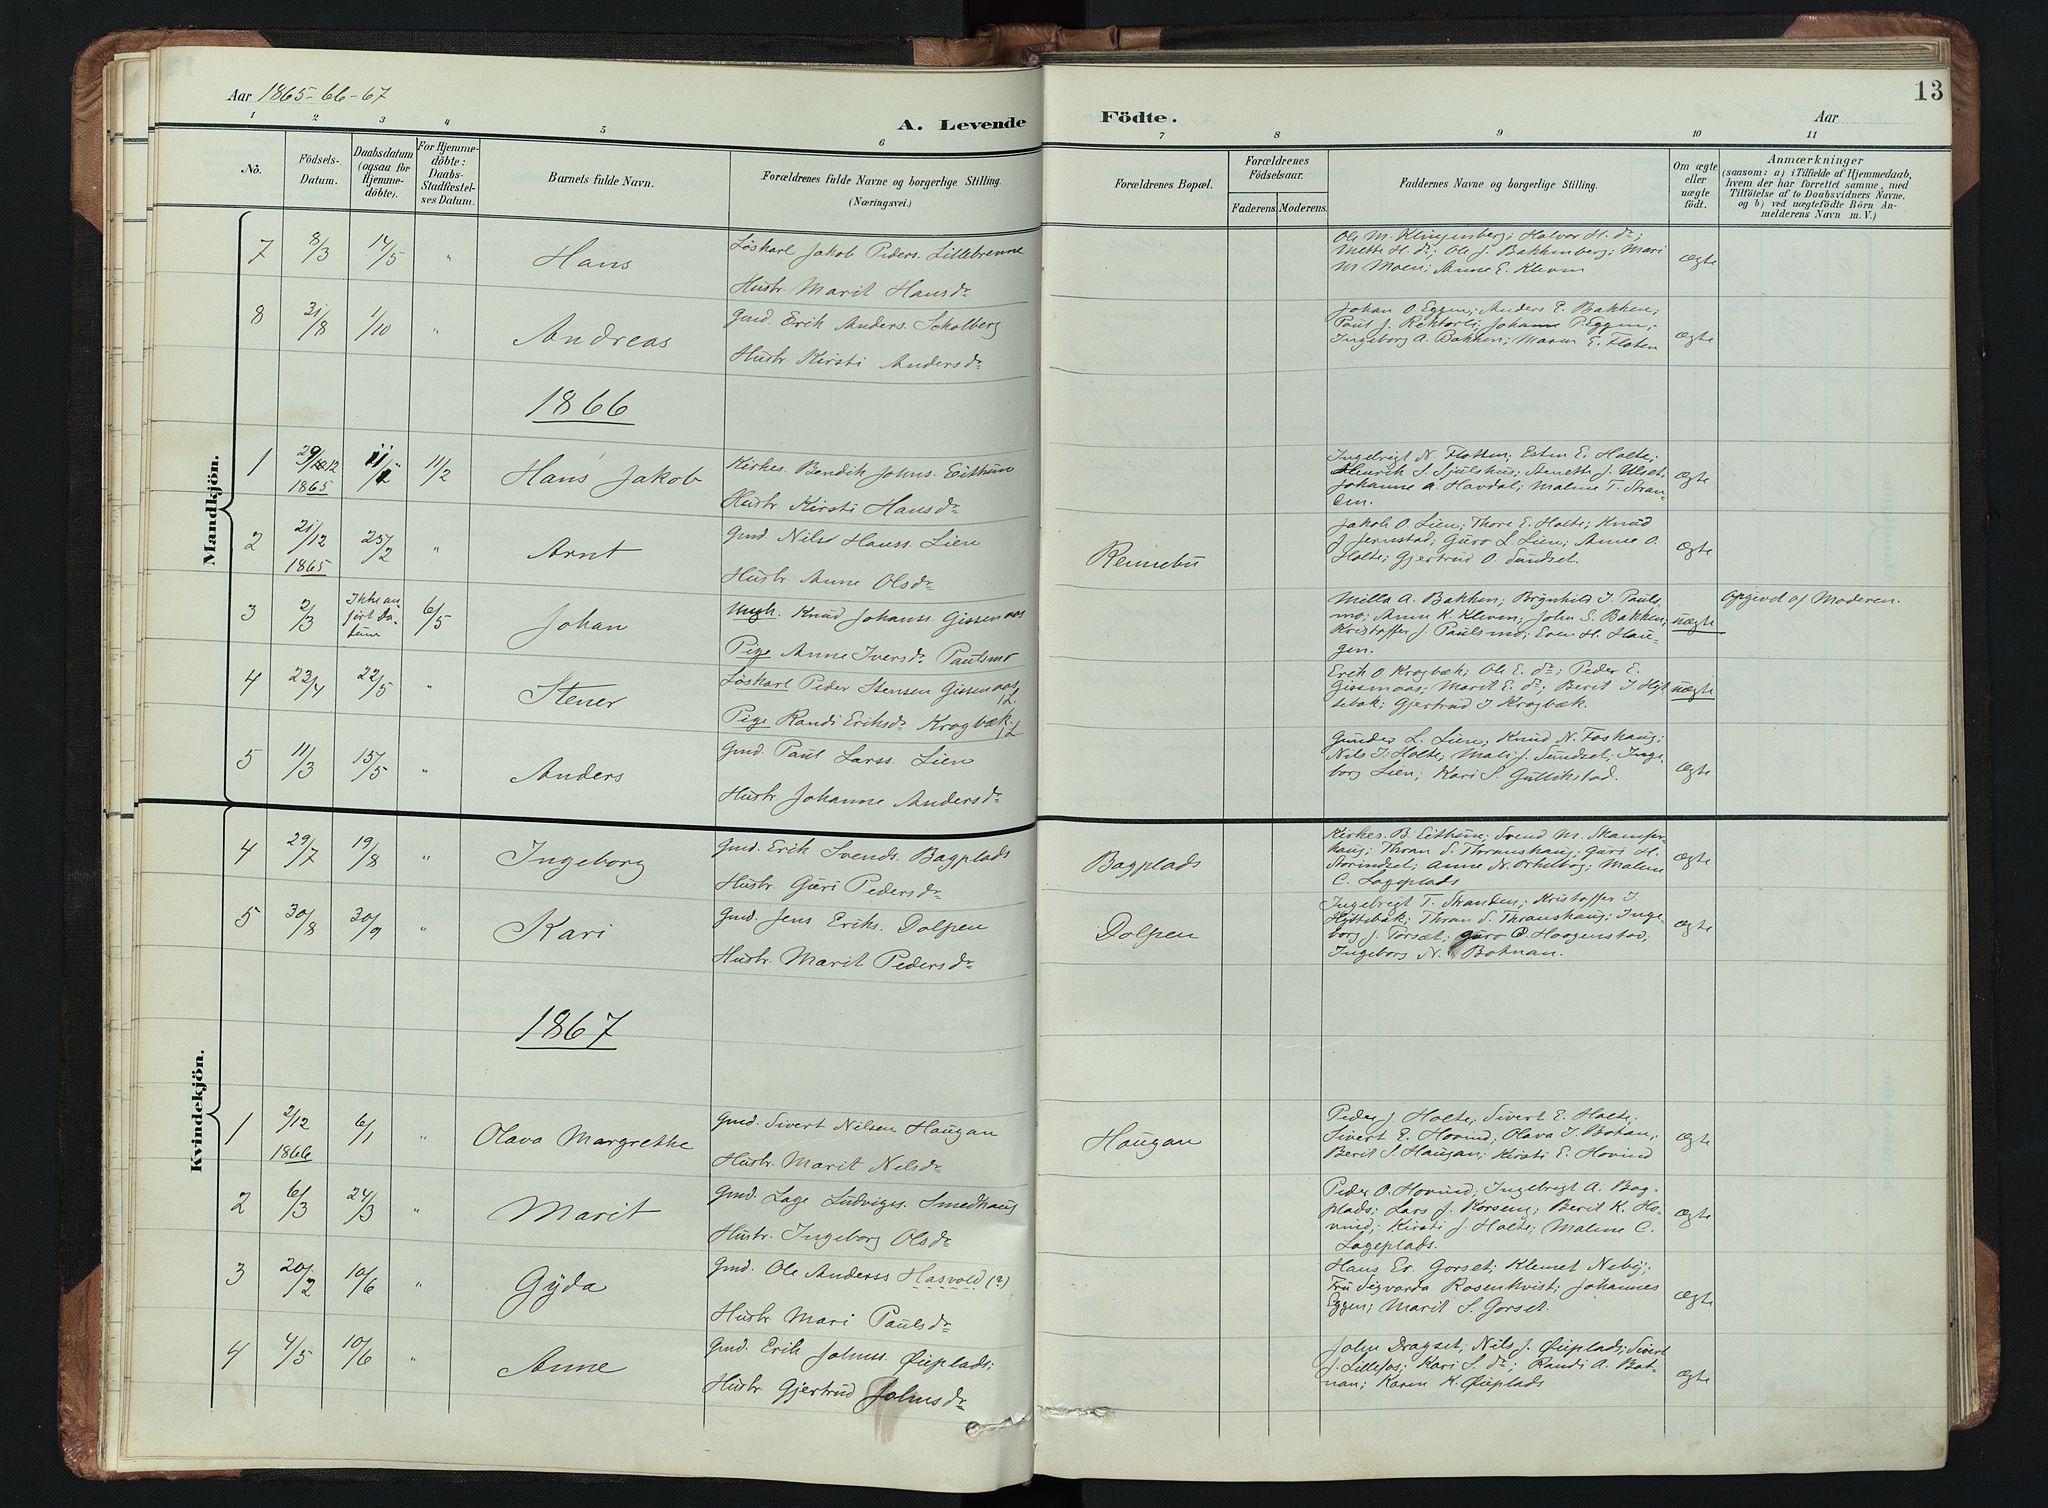 Aar 1865-66-67
A. Levende
Födte.
Aar
13
1 2 3 4 5 6 7 8 9 10 11
No.
Födsels-Datum.
Daabsdatum (ogsaa for Hjemme-döbte).
For Hjemme-döbte: Daabs-Stadfæstel-ses Datum.
Barnets fulde Navn.
Forældrenes fulde Navne og borgerlige Stilling.
(Næringsvei.)
Forældrenes Bopæl.
Forældrenes Födselsaar.
Faderens. Moderens.
Faddernes Navne og borgerlige Stilling.
Om ægte eller uægte födt.
Anmærkninger
(saasom: a) i Tilfælde af Hjemmedaab,
hvem der har forrettet samme, med
Tilföielse af to Daabsvidners Navne.
og b) ved uægtefödte Börn An-
melderens Navn m. V.)
Mandkjön.
7 8/3 14/5 " Hans
Löskarl Jakob Peders. Lillebrenne
Hustr. Marit Hansdr
Ole M. Klingenberg; Halvor H. do;
Mette H. do; Ole J. Bakkenberg; Mari
M. Moen; Anne E. Kleven
Ægte
8 31/8 1/10 " Andreas
Gmd. Erik Anders. Scholberg
Hustr. Kirsti Andersdr
Johan O. Eggen; Anders E. Bakken;
Paul J. Rektorli; Johanne P. Eggen;
Ingeborg A. Bakken; Maren E. Floten
Ægte
1866
1 29/12 1865 11/2 Hans Jakob
Kirkes. Bendik Johns. Eithun
Hustr. Kirsti Hansdr
Ingebrigt N. Flotten; Esten E. Holte;
Henrik S. Sjulshus; Anette J. Ulset;
Johanne A. Havdal; Malene T. Stran-
den.
Ægte
2 21/12 1865 25/2 " Arnt
Gmd. Nils Hanss. Lien
Hustr. Anne Olsdr
Rennebu
Jakob O. Lien; Thore E. Holte; Knud
J. Jernstad; Guro L. Lien; Anne O.
Holte; Gjertrud O. Sundset.
Ægte
3 2/3 Ikke an-fört Da-tum 6/5 Johan
Ungk. Knud Johanss. Gissenaas
Pige Anne Iversdr Paulsmo
Milla A. Bakken; Brynhild I. Pauls-
mo; Anne K. Kleven; John S. Bakken;
Kristoffer J. Paulsmo; Even H. Hau-
gen.
uægte
Opgivet af Moderen.
4 23/4 22/5 " Stener
Löskarl Peder Stensen Gissenaas
Pige Randi Eriksdr Krogbæk
Erik O. Krogbæk; Ole E. do; Peder E.
Gissenaas; Marit E. do; Berit I Hyt-
tebak; Gjertrud I Krogbæk.
uægte
5 11/3 15/5 " Anders
Gmd. Paul Larss. Lien
Hustr. Johanne Andersdr
Gunder L. Lien; Knud N. Foshaug;
Nils I. Holte; Mali J. Sundset; Inge-
borg Lien; Kari S. Gullikstad.
Ægte
Kvindekjön.
4 29/7 19/8 " Ingeborg
Gmd. Erik Svends. Bagplads
Hustr. Guri Pedersdr
Bagplads
Kirkes. B. Eithun; Svend M. Skamfer-
haug; Thran S. Thranshaug; Guri H.
Storindset; Anne N. Orkelbog; Malene
C. Lageplads
Ægte
5 30/8 30/9 " Kari
Gmd. Jens Eriks. Dolpen
Hustr. Marit Pedersdr
Dolpen
Ingebrigt T. Stranden; Kristoffer I
Hyttebak; Thran S. Thranshaug; Inge-
borg J. Torsæt; Guro O. Haagenstad;
Ingeborg N. Botnan.
Ægte
1867
1 2/12 1866 6/1 " Olava Margrethe
Gmd. Sivert Nilsen Haugan
Hustr. Marit Nilsdr
Haugan
Peder J. Holte; Sivert E. Holte;
Sivert E. Hovind; Olava I. Botnan;
Berit S. Haugan; Kirsti E. Hovind
Ægte
2 6/3 24/3 " Marit
Gmd. Lage Ludvigs. Smedhaug
Hustr. Ingeborg Olsdr
Peder O. Hovind; Ingebrigt A. Bag-
plads; Lars J. Korseng; Berit K. Ho-
vind; Kirsti J. Holte; Malene C.
Lageplads.
Ægte
3 20/2 10/6 " Gyda
Gmd. Ole Anderss Hasvold (?)
Hustr. Mari Paulsdr
Hans Er. Gorset; Klemet Neby;
Fru Sigvarda Rosenkvist; Johannes
Eggen; Marit S. Gorset.
Ægte
4 4/5 10/6 " Anne
Gmd. Erik Johnss. Øieplads;
Hustr. Gjertrud Johnsdr
John Dragset; Nils J. Øieplads; Sivert
J. Lillefos; Kari S. do; Randi A. Bot-
nan; Karen K. Øieplads
Ægte